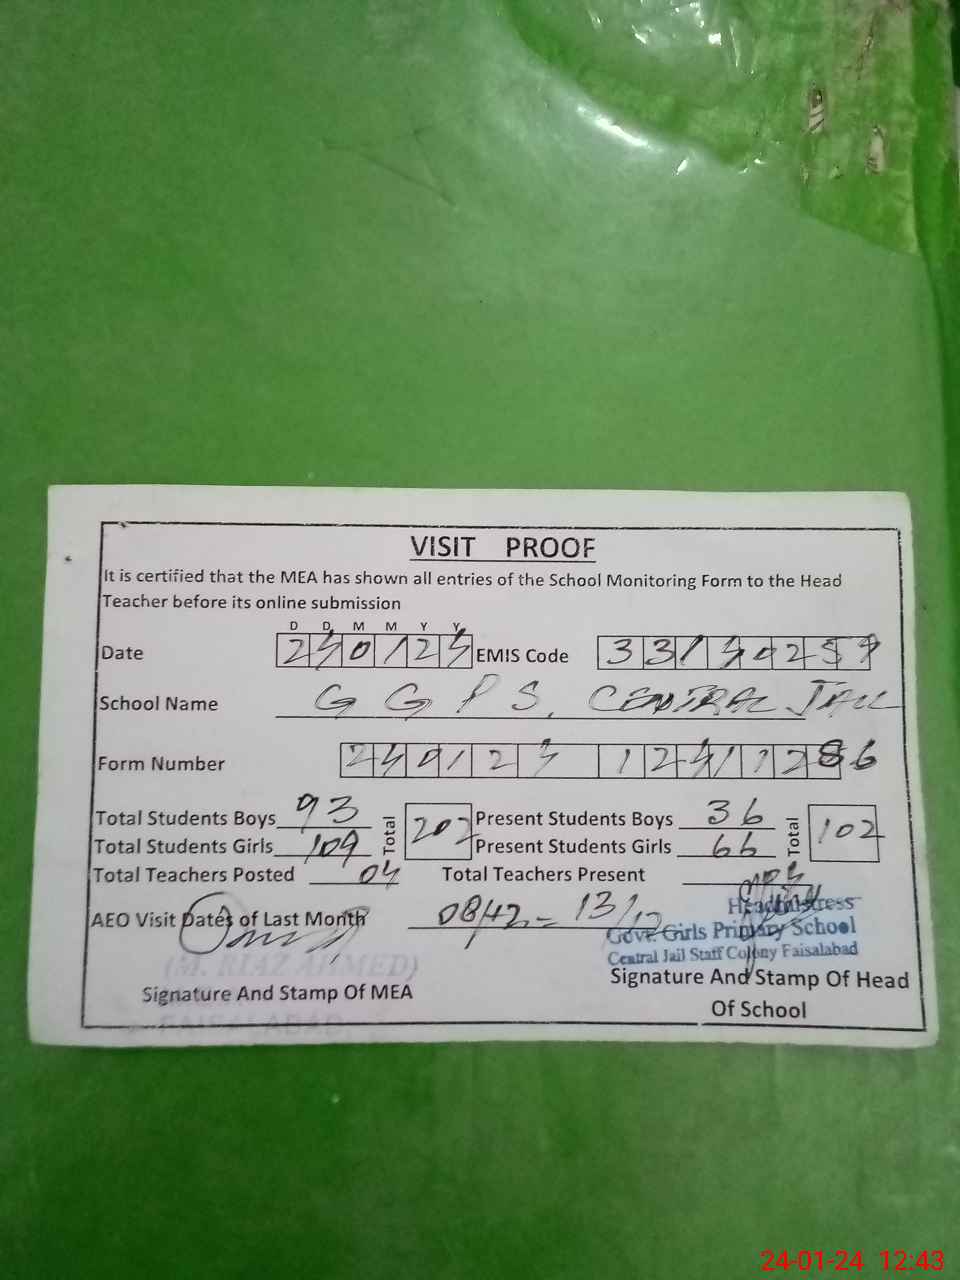 VISIT PROOF
It is certified that the MEA has shown all entries of the School Monitoring Form to the Head
Teacher before its online submission
D D M M Y Y
Date 240124 EMIS Code 33130259
School Name G G P S, CENTRAL JAIL
Form Number 240124 12411286
Total Students Boys 93 Total 202 Present Students Boys 36 Total 102
Total Students Girls 109 Present Students Girls 66
Total Teachers Posted 04 Total Teachers Present 04
AEO Visit Dates of Last Month 08/12 - 13/12
Headmistress
Govt. Girls Primary School
Central Jail Staff Colony Faisalabad
(M. RIAZ AHMED)
Signature And Stamp Of MEA
FAISALABAD.
Signature And Stamp Of Head
Of School
24-01-24 12:43